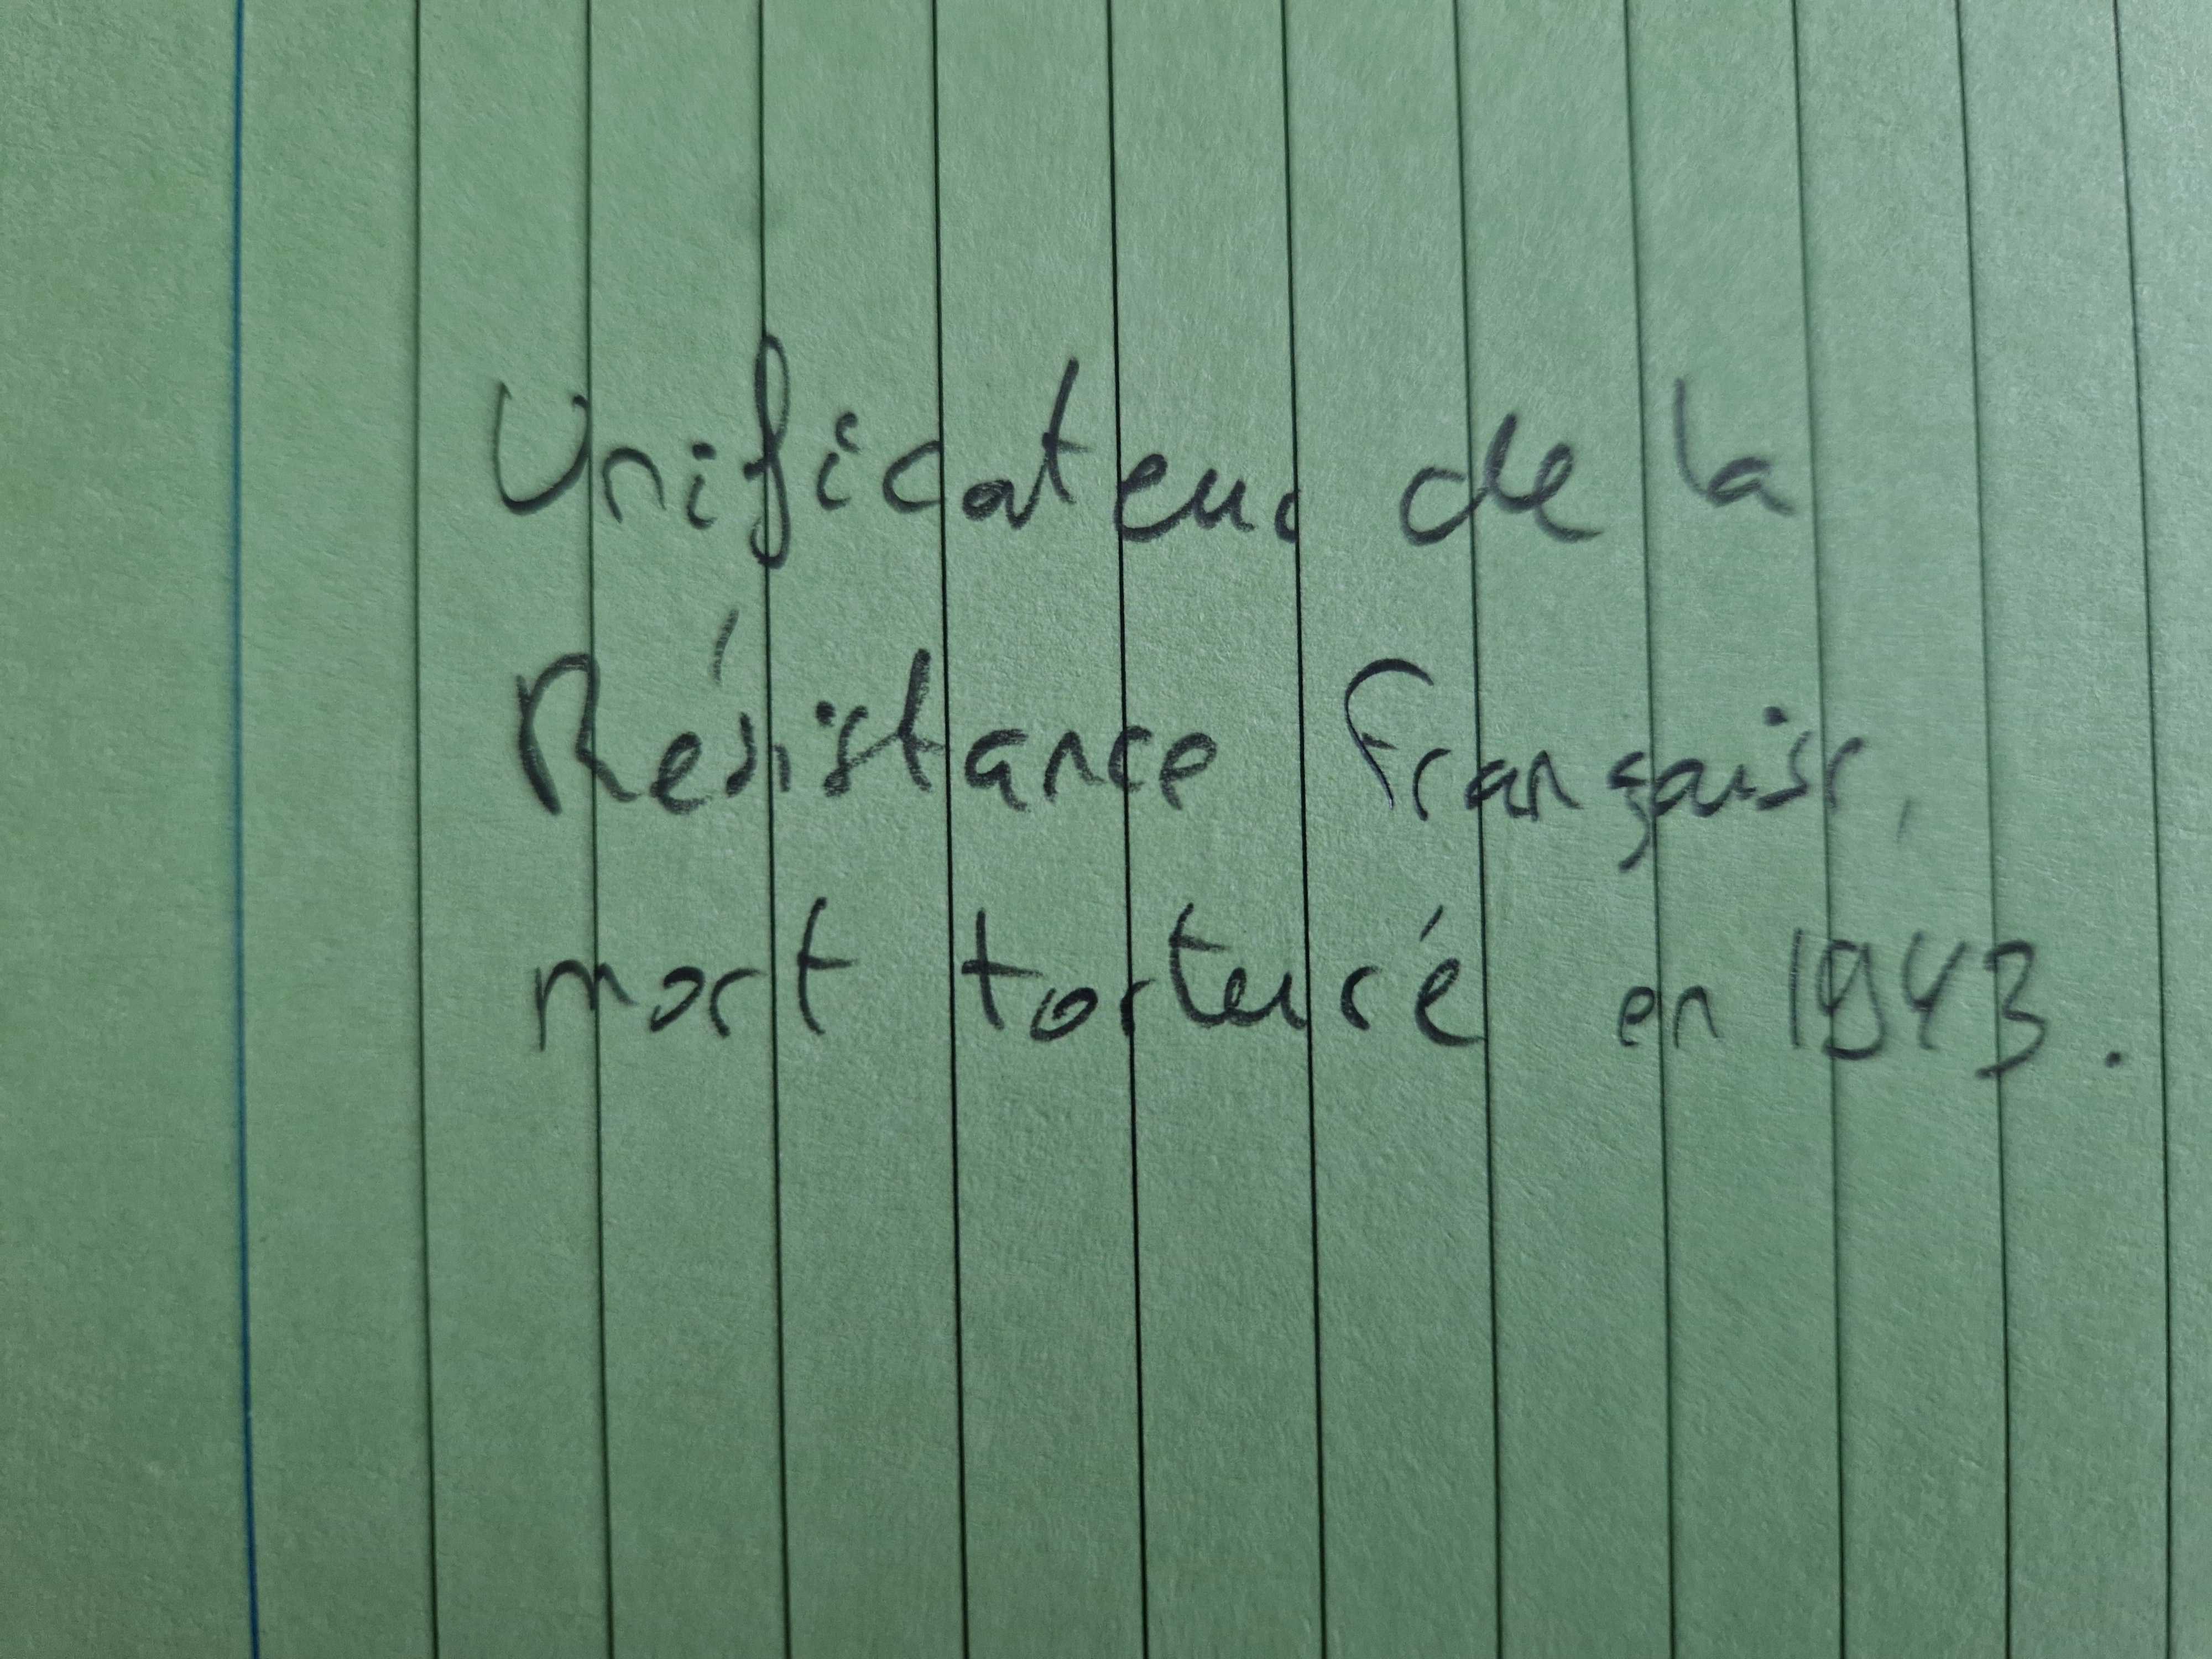 Unificateur de la
Résistance Française,
mort torturé en 1943.